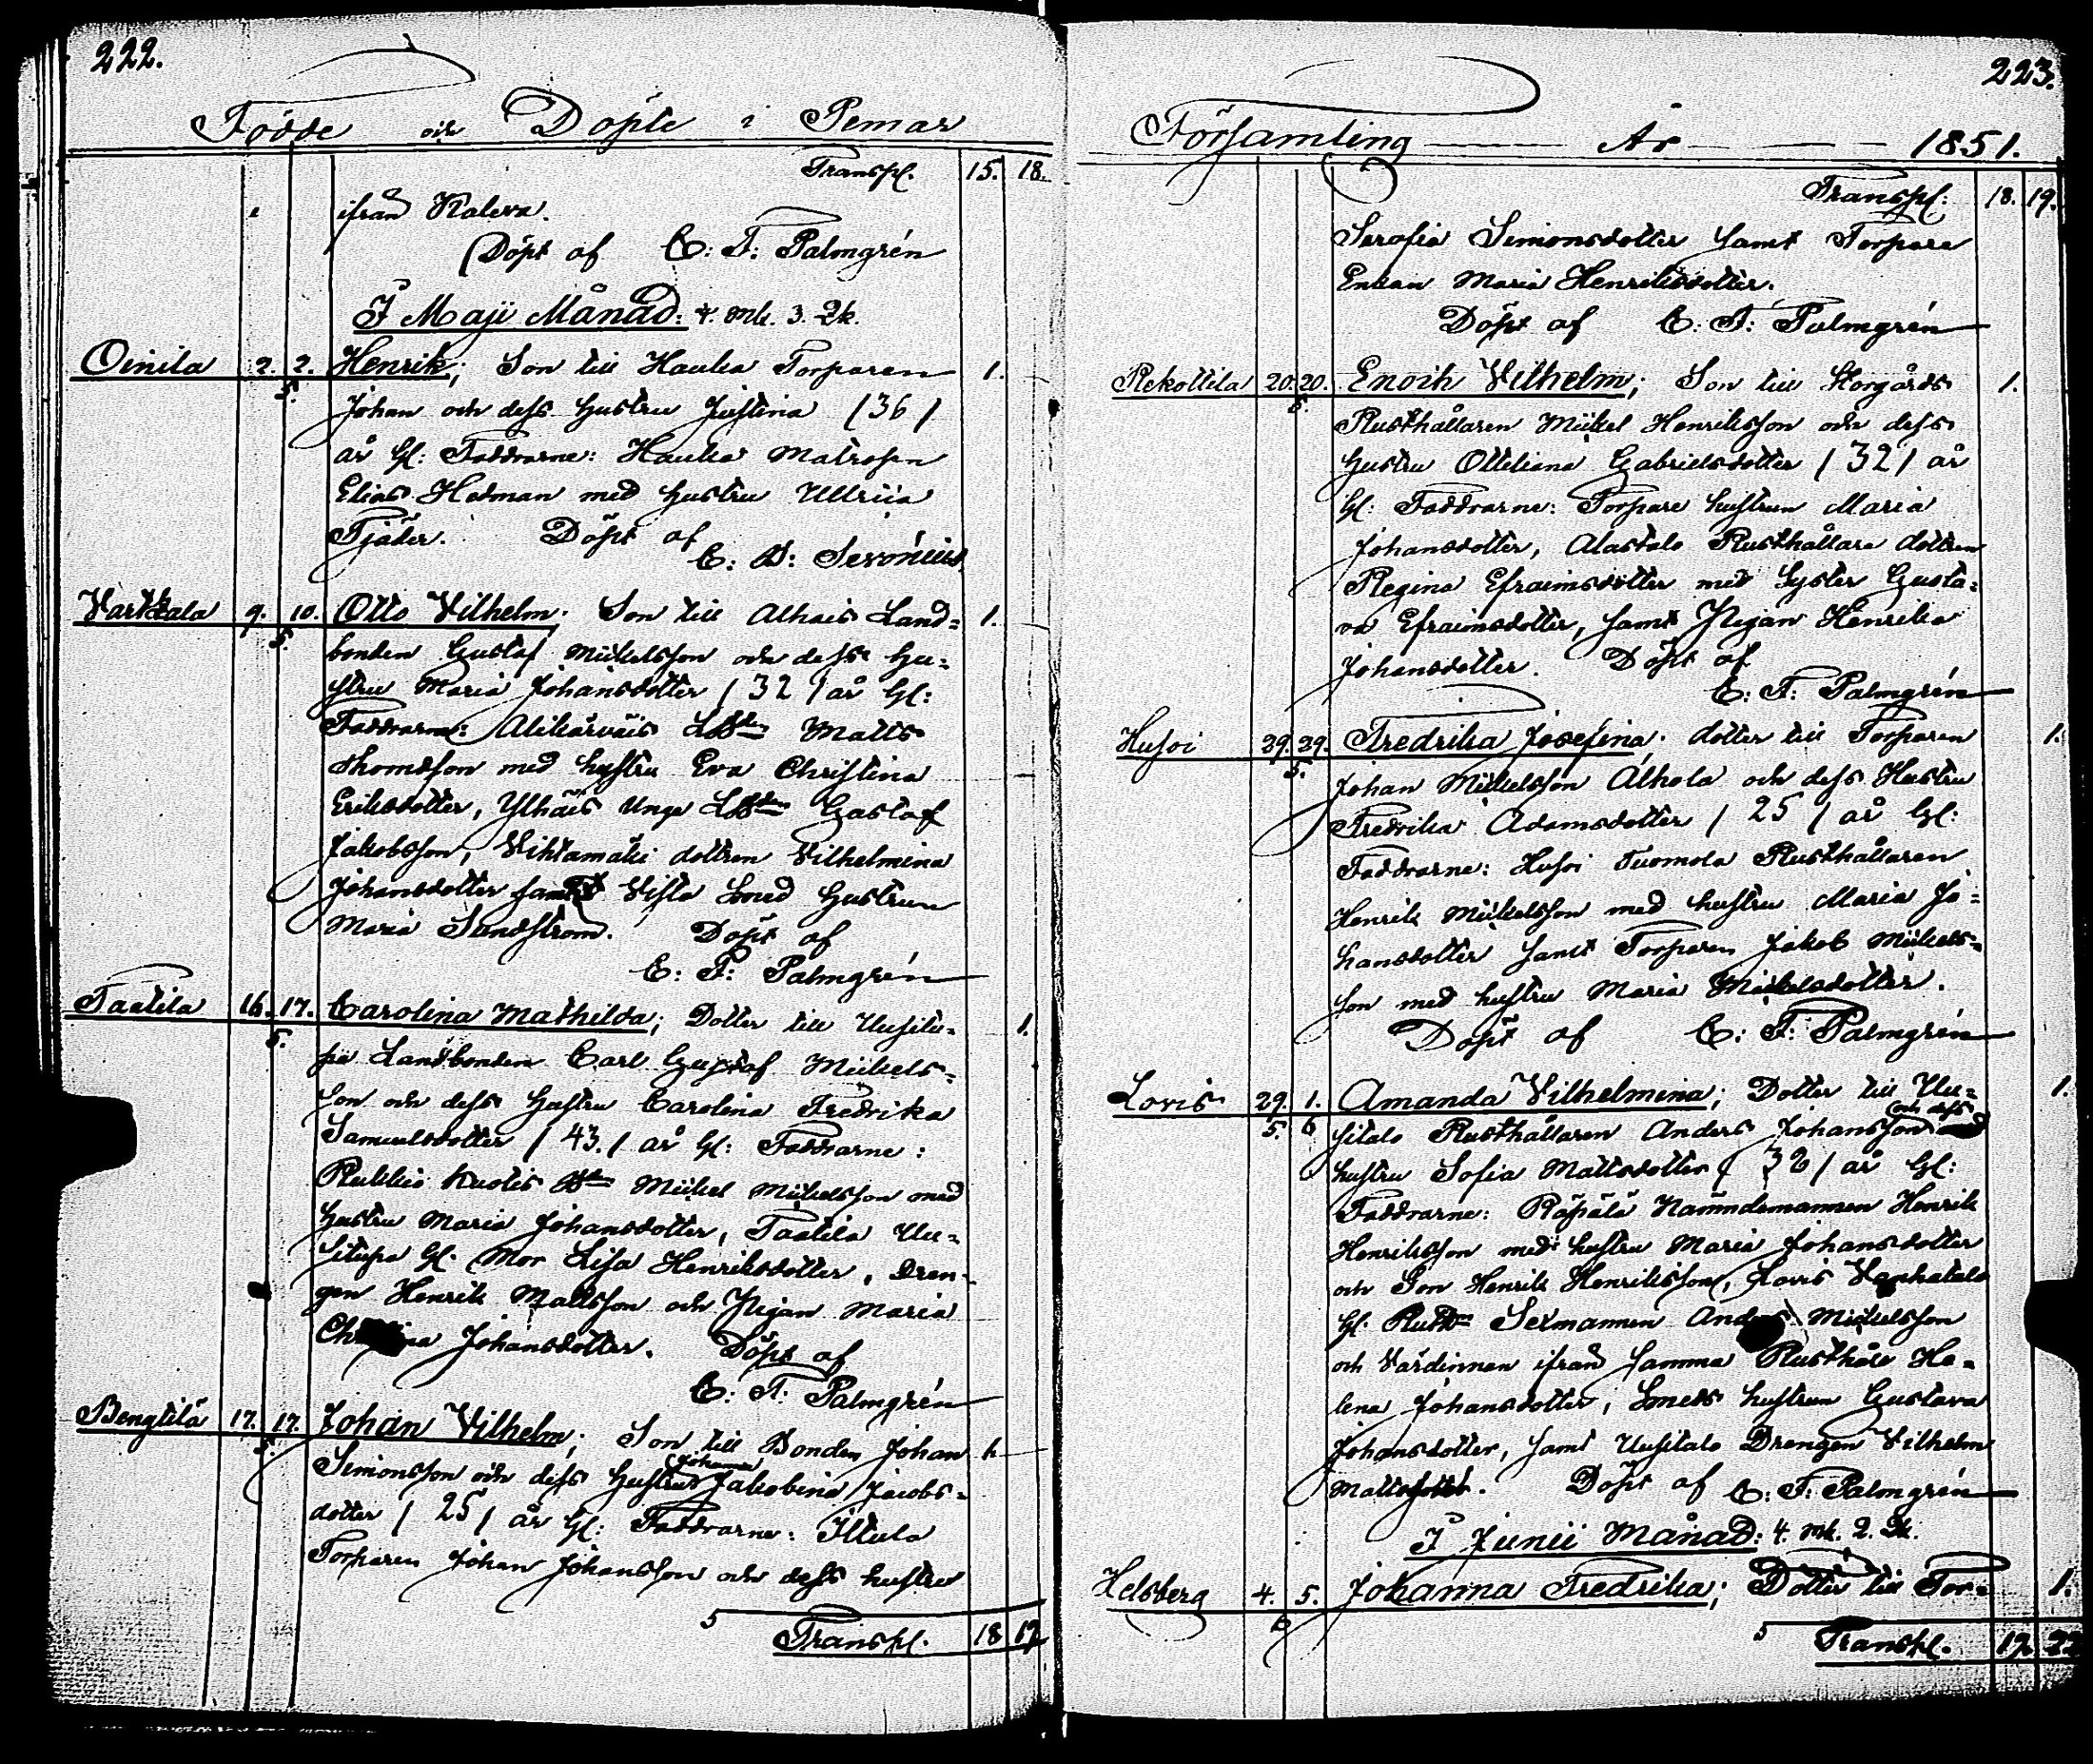 222.
Födde och Döpte i Pemar
Transp. 15. 18.
ifrån Kaleva.
Döpt af C: F: Palmgrén
I Maji Månad: 4. Mk. 3. Qk.
Oinila 2. 2. Henrik; Son till Hauka Torparen 1.
5. Johan och dess hustru Justina / 36 /
år gl: Faddrarne: Hauka Matrosen
Elias Hedman med hustru Ullrica
Tjäder. Döpt af
C: D: Seronius
Vartsala 9. 10. Otto Vilhelm. Son till Alhais Land= 1.
5. bonden Gustaf Mickelsson och dess hu=
stru Maria Johansdotter / 32 / år gl:
Faddrarne: Alikärväis Matts
Thomsson med hustru Eva Christina
Eriksdotter, Ylhäis unge Gustaf
Jakobsson, Vihtamäki dottren Vilhelmina
Johansdotter samt Vista Smed hustrun
Maria Sundström. Döpt af
C: F: Palmgrén
Taatila 16. 17. Carolina Mathilda; Dotter till Uusitu= 1.
5. pa Landbonden Carl Gustaf Mickels=
son och dess hustru Carolina Fredrika
Samuelsdotter / 43. / år gl: Faddrarne:
Rukkis Kuotis Mickel Mickelsson med
hustru Maria Johansdotter, Taatila Uu=
situpa gl. Mor Lisa Henriksdotter, Dren=
gen Henrik Mattsson och Pigan Maria
Johansdotter. Döpt af
C: F: Palmgrén
Bengtilä 17. 17. Johan Vilhelm; Son till Bonden Johan 1.
5. Simonsson och dess hustru Johanna Jakobina Jacobs=
dotter / 25 / år gl: Faddrarne: Iltula
Torparen Johan Johansson och dess hustru
5 Transp. 18 19
223.
Församling År 1851.
Transp: 18. 19.
Serafia Simonsdotter samt Torpare
Enkan Maria Henriksdotter.
Döpt af C: F: Palmgrén
Rekottila 20. 20. Enoch Vilhelm; Son till Storgårds 1.
5. Rusthållaren Mickel Henriksson och dess
hustru Ottiliana Gabrielsdotter / 32 / år
gl: Faddrarne: Torpare hustrun Maria
Johansdotter, Alastalo Rusthållare dottren
Regina Efraimsdotter med Syster Gusta=
va Efraimsdotter, samt Pigan Henrika
Johansdotter. Döpt af
C: F: Palmgrén
Husoi 29. 29. Fredrika Josefina. dotter till Torparen 1.
5. Johan Mickelsson Alhola och dess Hustru
Fredrika Adamsdotter / 25 / år gl:
Faddrarne: Husoi Tuomola Rusthållaren
Henrik Mickelsson med hustru Maria Jo=
hansdotter samt Torparen Jakob Mickels=
son med hustru Maria Mickelsdotter.
Döpt af C: F: Palmgrén
Lovis 29. 1. Amanda Vilhelmina; Dotter till Uu= 1.
5. 6 sitalo Rusthållaren Anders Johansson och dess
hustru Sofia Mattsdotter / 32 / år gl:
Faddrarne: Räpälä Nämndemannen Henrik
Henriksson med hustru Maria Johansdotter
och Son Henrik Henriksson, Lovis Vanhatalo
gl. Sexmannen Anders Mickelsson
och Värdinnan ifrån samma Rusthåll He=
lena Johansdotter, Smeds hustrun Gustava
Johansdotter, samt Uusitalo Drengen Vilhelm
Döpt af C: F: Palmgrén
I Junii Månad: 4. Mk. 2. Qk.
Helsberg 4. 5. Johanna Fredrika; Dotter till Tor= 1.
6
5 Transp. 19. 22